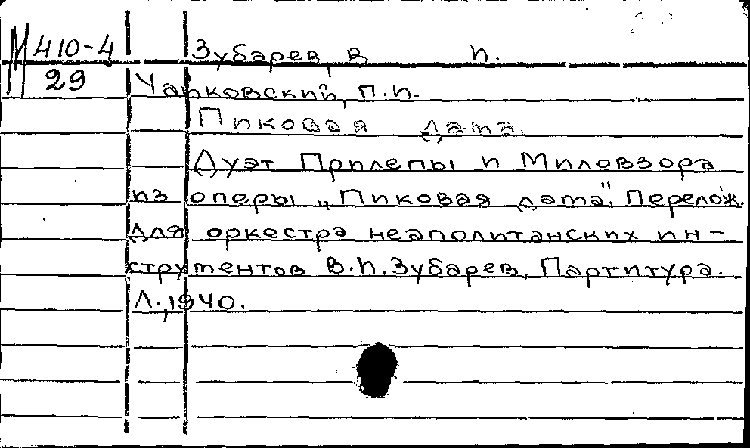 М 410-4 Зубарев, В. И.
29 Чайковский, П.И.
Пиковая дама
Дуэт Прилепы и Миловзора
из оперы "Пиковая дама". Перелож.
для оркестра неаполитанских ин-
струментов В.И.Зубарев. Партитура.
Л., 1940.